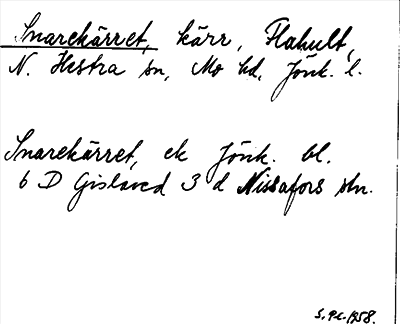 Snarekärret, kärr, Flahult,
N. Hestra sn, Mo hd, Jönk. l.
Snarekärret, ek Jönk. bl.
6 D Gislaved 3 d Nissafors stn.
1958.